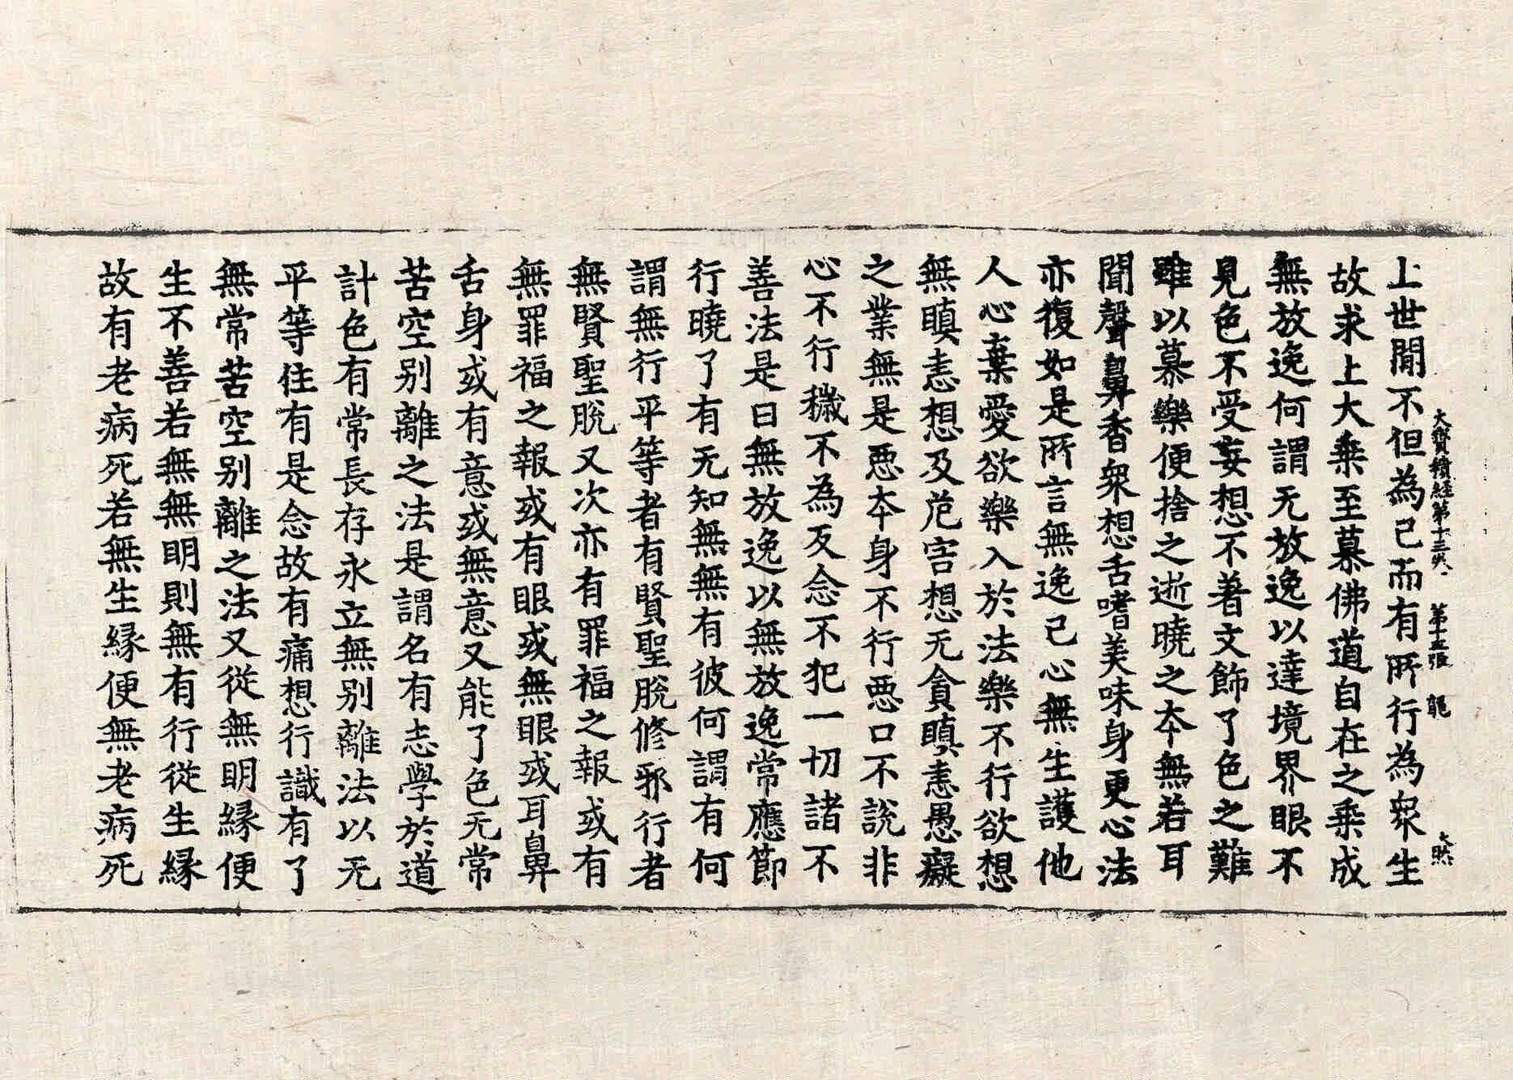 大寶積經第十三 第十五張 龍
上世間不但為己而有所行為眾生
故求上大乗至慕佛道自在之乗成
無放逸何謂无放逸以達境界眼不
見色不受妄想不著文飾了色之難
雖以慕樂便捨之逝曉之夲無若耳
聞聲鼻香眾想舌嗜美味身更心法
亦復如是所言無逸己心無生護他
人心棄愛欲樂入於法樂不行欲想
無瞋恚想及危害想无貪瞋恚愚癡
之業無是惡夲身不行惡口不說非
心不行穢不為反念不犯一切諸不
善法是曰無放逸以無放逸常應節
行曉了有无知無無有彼何謂有何
謂無行平等者有賢聖脫修邪行者
無賢聖脫又次亦有罪福之報或有
無罪福之報或有眼或無眼或耳鼻
舌身或有意或無意又能了色无常
苦空别離之法是謂名有志學於道
計色有常長存永立無别離法以无
平等住有是念故有痛想行識有了
無常苦空别離之法又從無明緣便
生不善若無無明則無有行從生緣
故有老病死若無生緣便無老病死